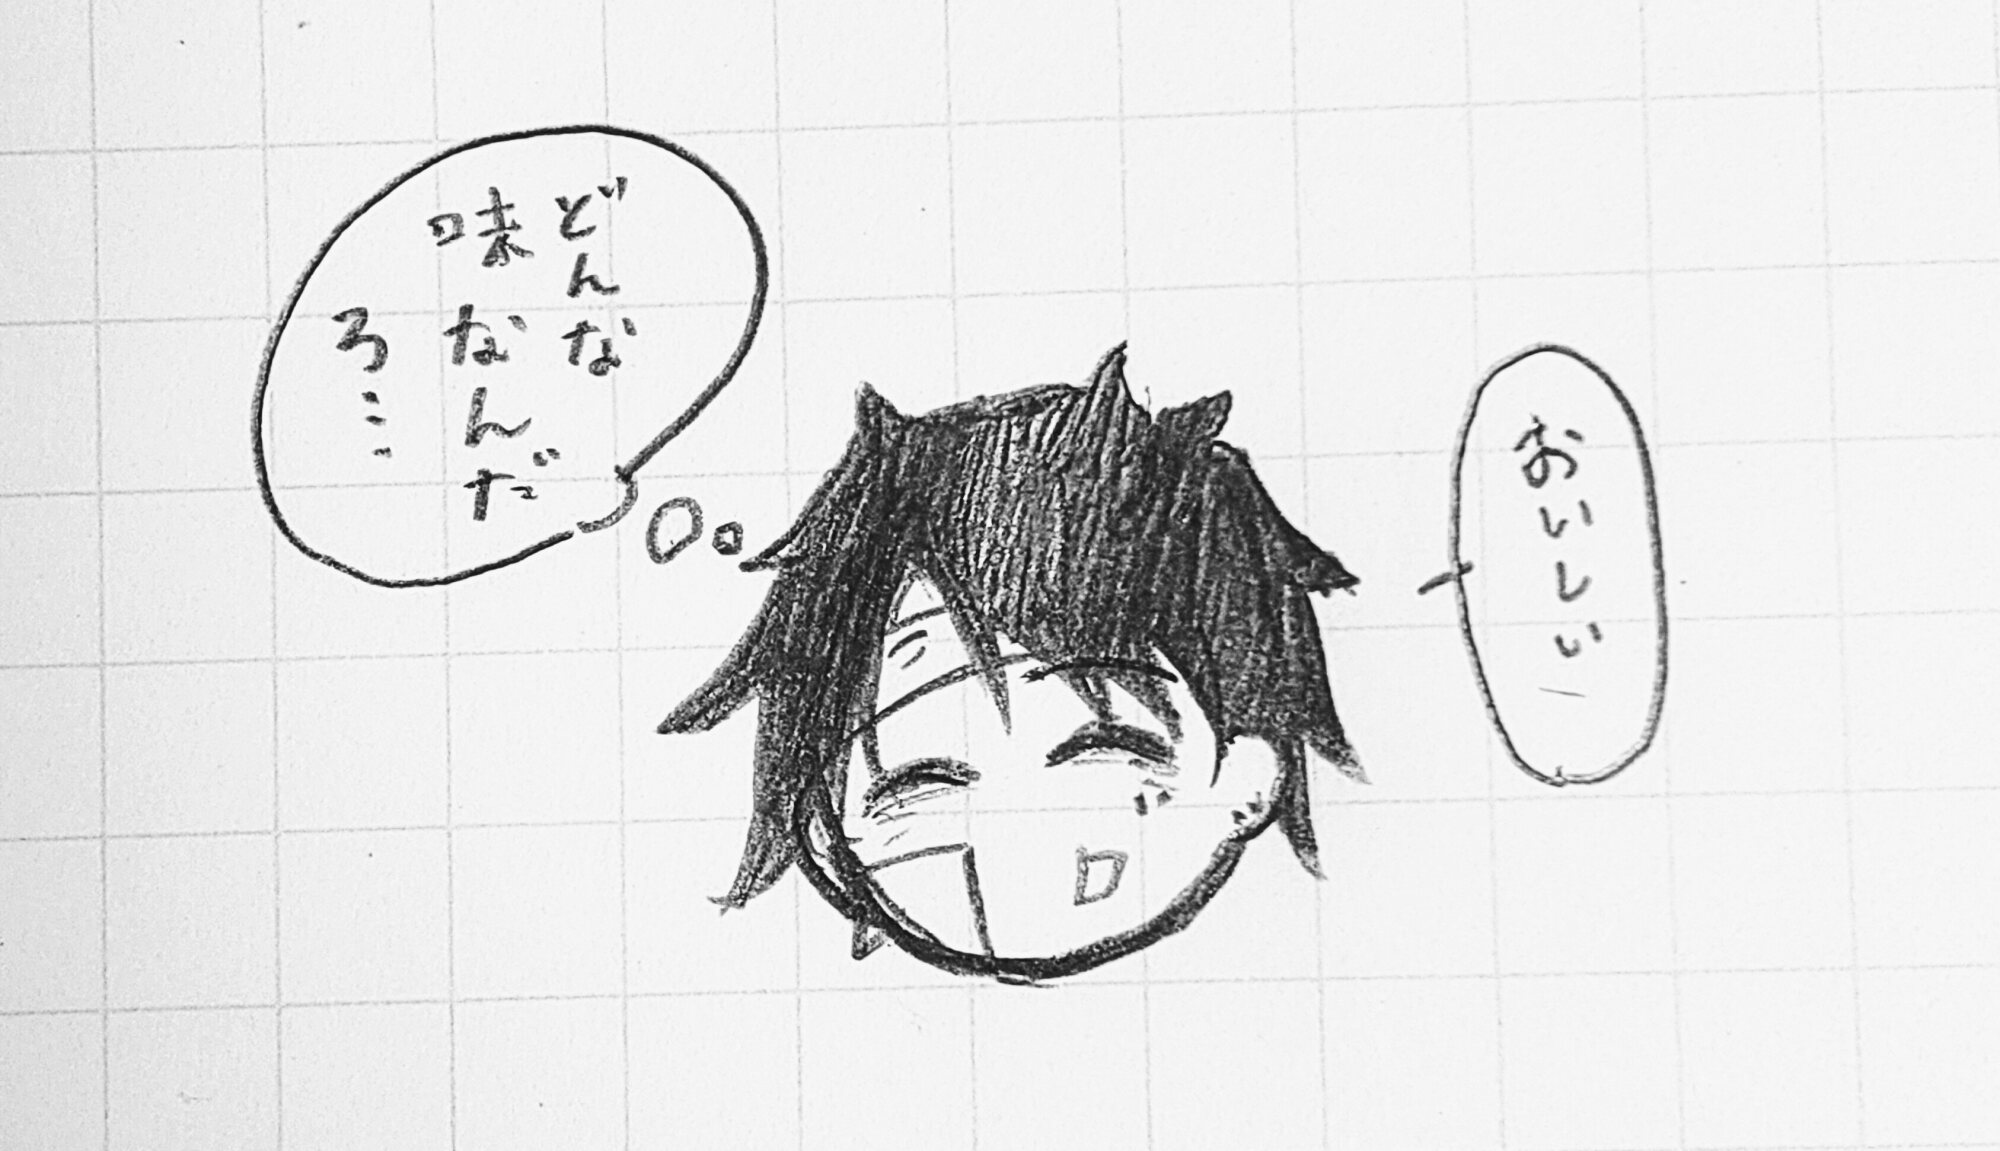 おいしい
どんな
味なんだ
ろ…